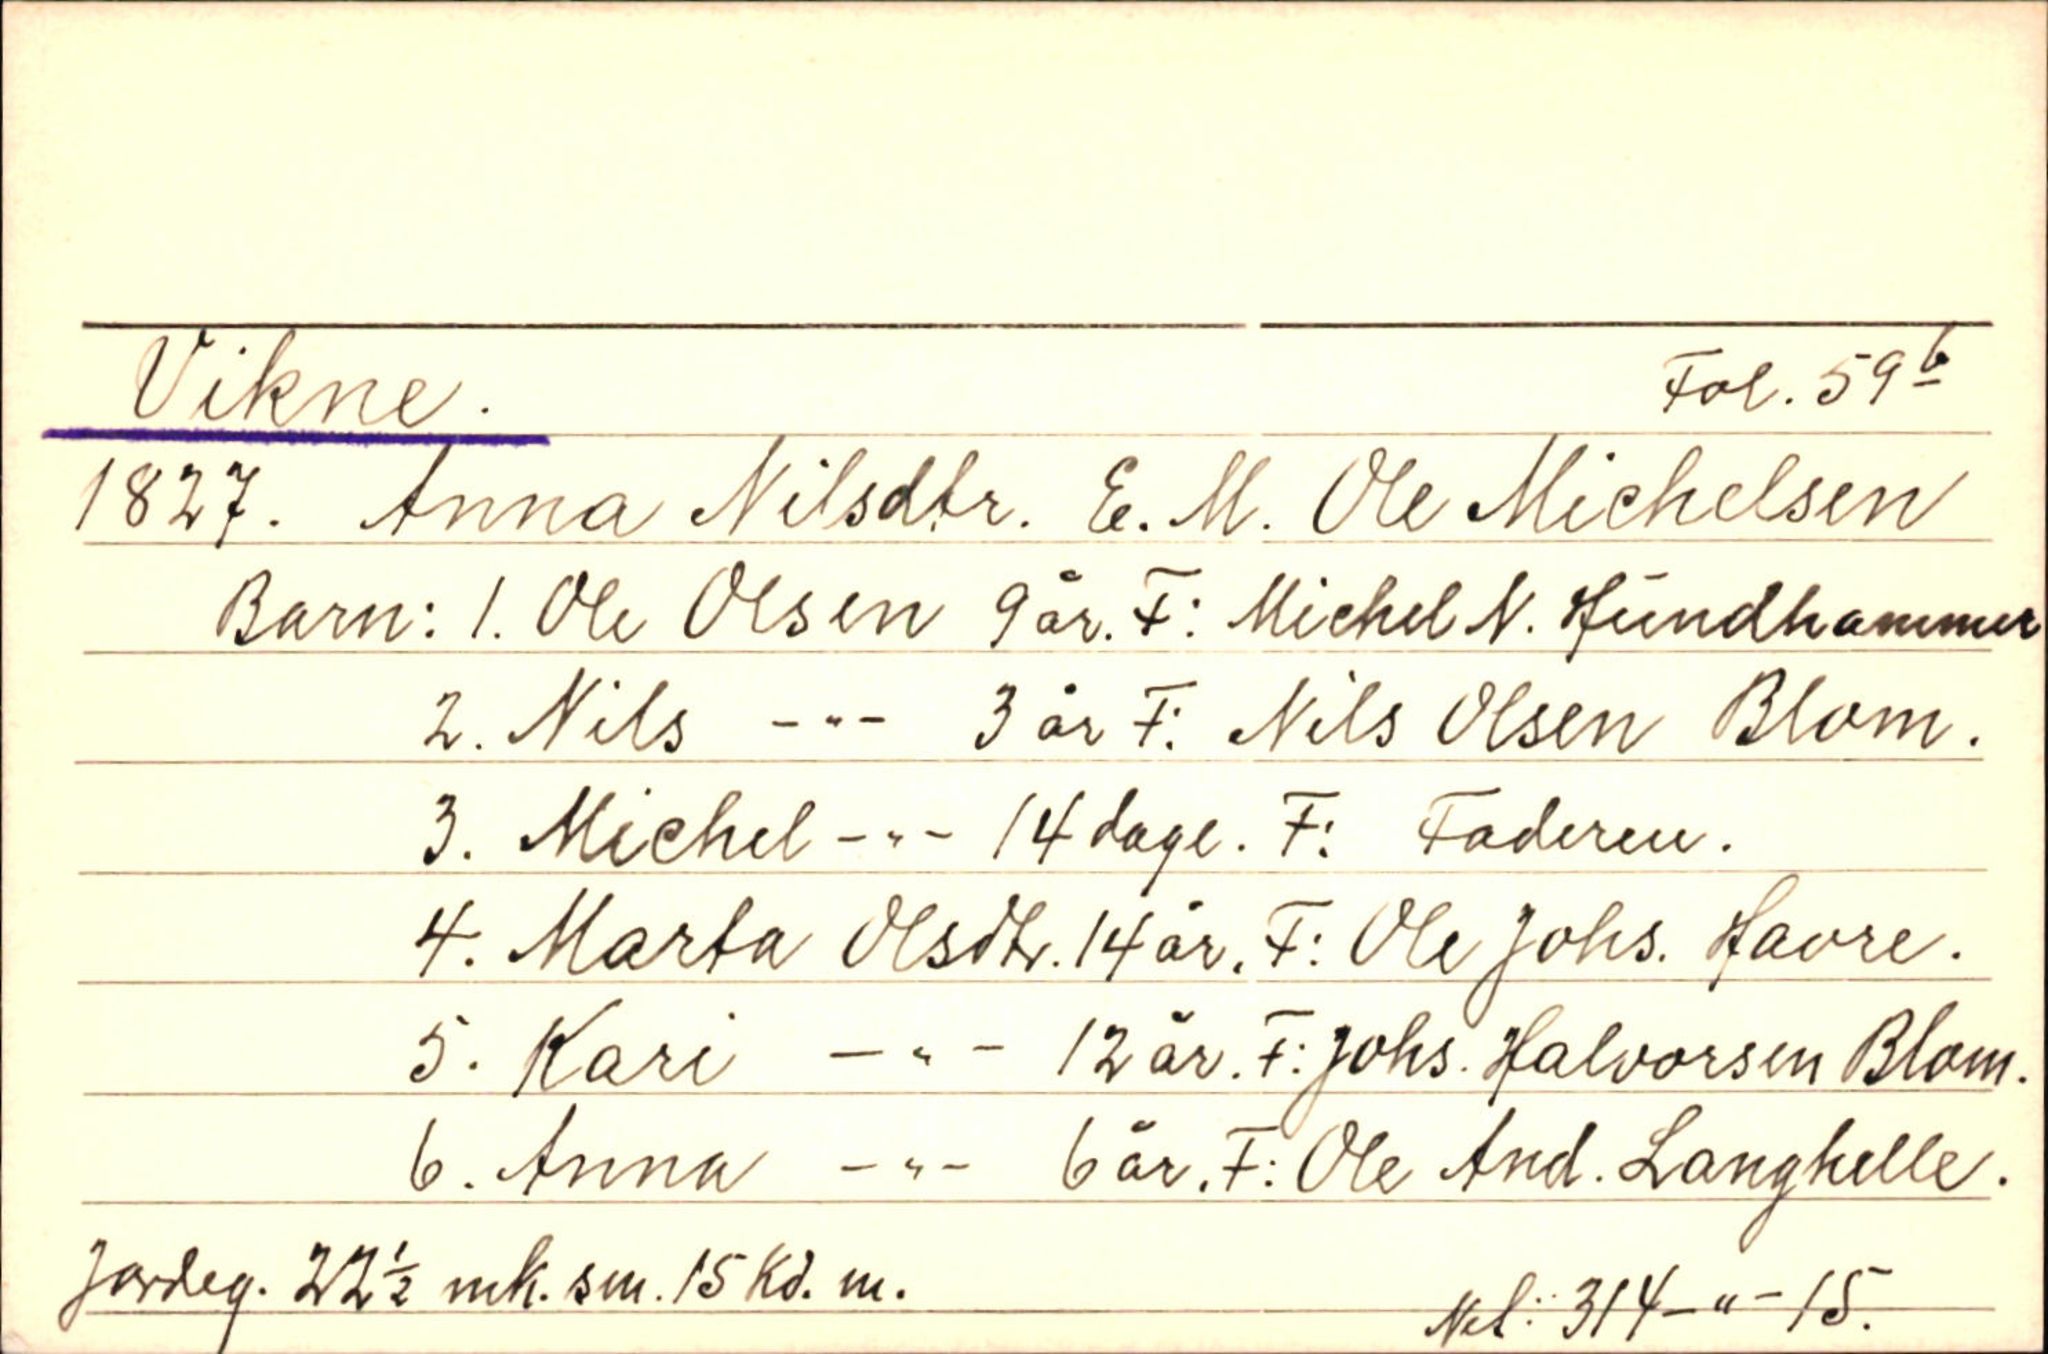 Vikne. Fol. 59b
1827. Anna Nilsdtr. E. M. Ole Michelsen
Barn: 1. Ole Olsen 9 år. F: Michel N. Hundhammer
2. Nils -"- 3 år F: Nils Olsen Blom.
3. Michel -"- 14 dage. F: Faderen.
4. Marta Olsdtr. 14 år. F: Ole Johs. Havre.
5. Kari -"- 12 år. F: Johs. Halvorsen Blom.
6. Anna -"- 6 år. F: Ole And. Langhelle.
Jordeg. 22 1/2 mk. sm. 15 Kd. m.
Net: 314-"-15.